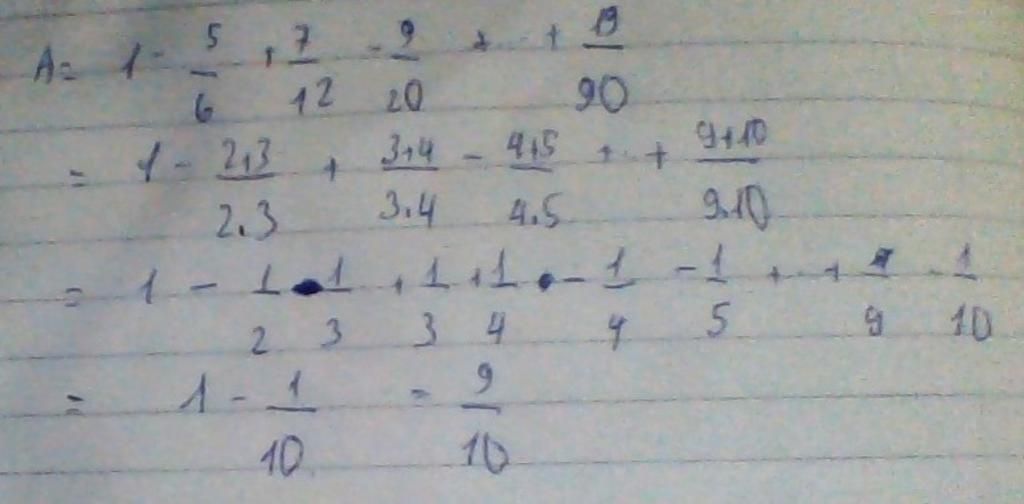 A = 1 - 5/6 + 7/12 - 9/20 + ... + 19/90
= 1 - 2+3/2.3 + 3+4/3.4 - 4+5/4.5 + ... + 9+10/9.10
= 1 - 1/2 - 1/3 + 1/3 + 1/4 - 1/4 - 1/5 + ... + 1/9 - 1/10
= 1 - 1/10 = 9/10